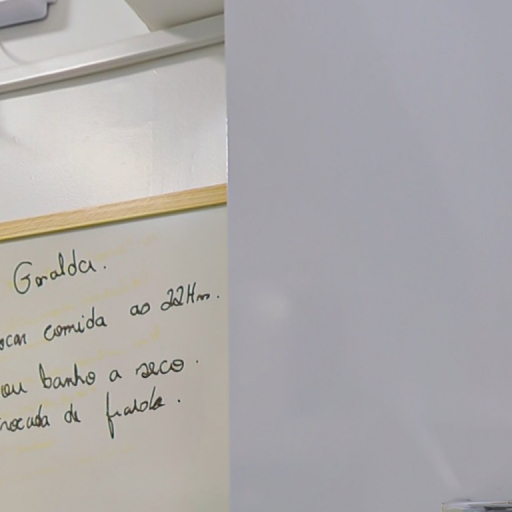 Geralda.
ocar comida as 22Hrs.
ou banho a seco.
rocada de fralda.